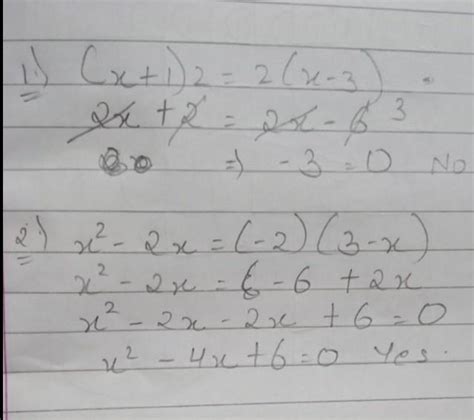 1.) (x+1)2 = 2(x-3) .
2x + 2 = 2x - 6 3
⇒ -3 = 0 No
2.) x² - 2x = (-2)(3-x)
x² - 2x = -6 + 2x
x² - 2x - 2x + 6 = 0
x² - 4x + 6 = 0 Yes.